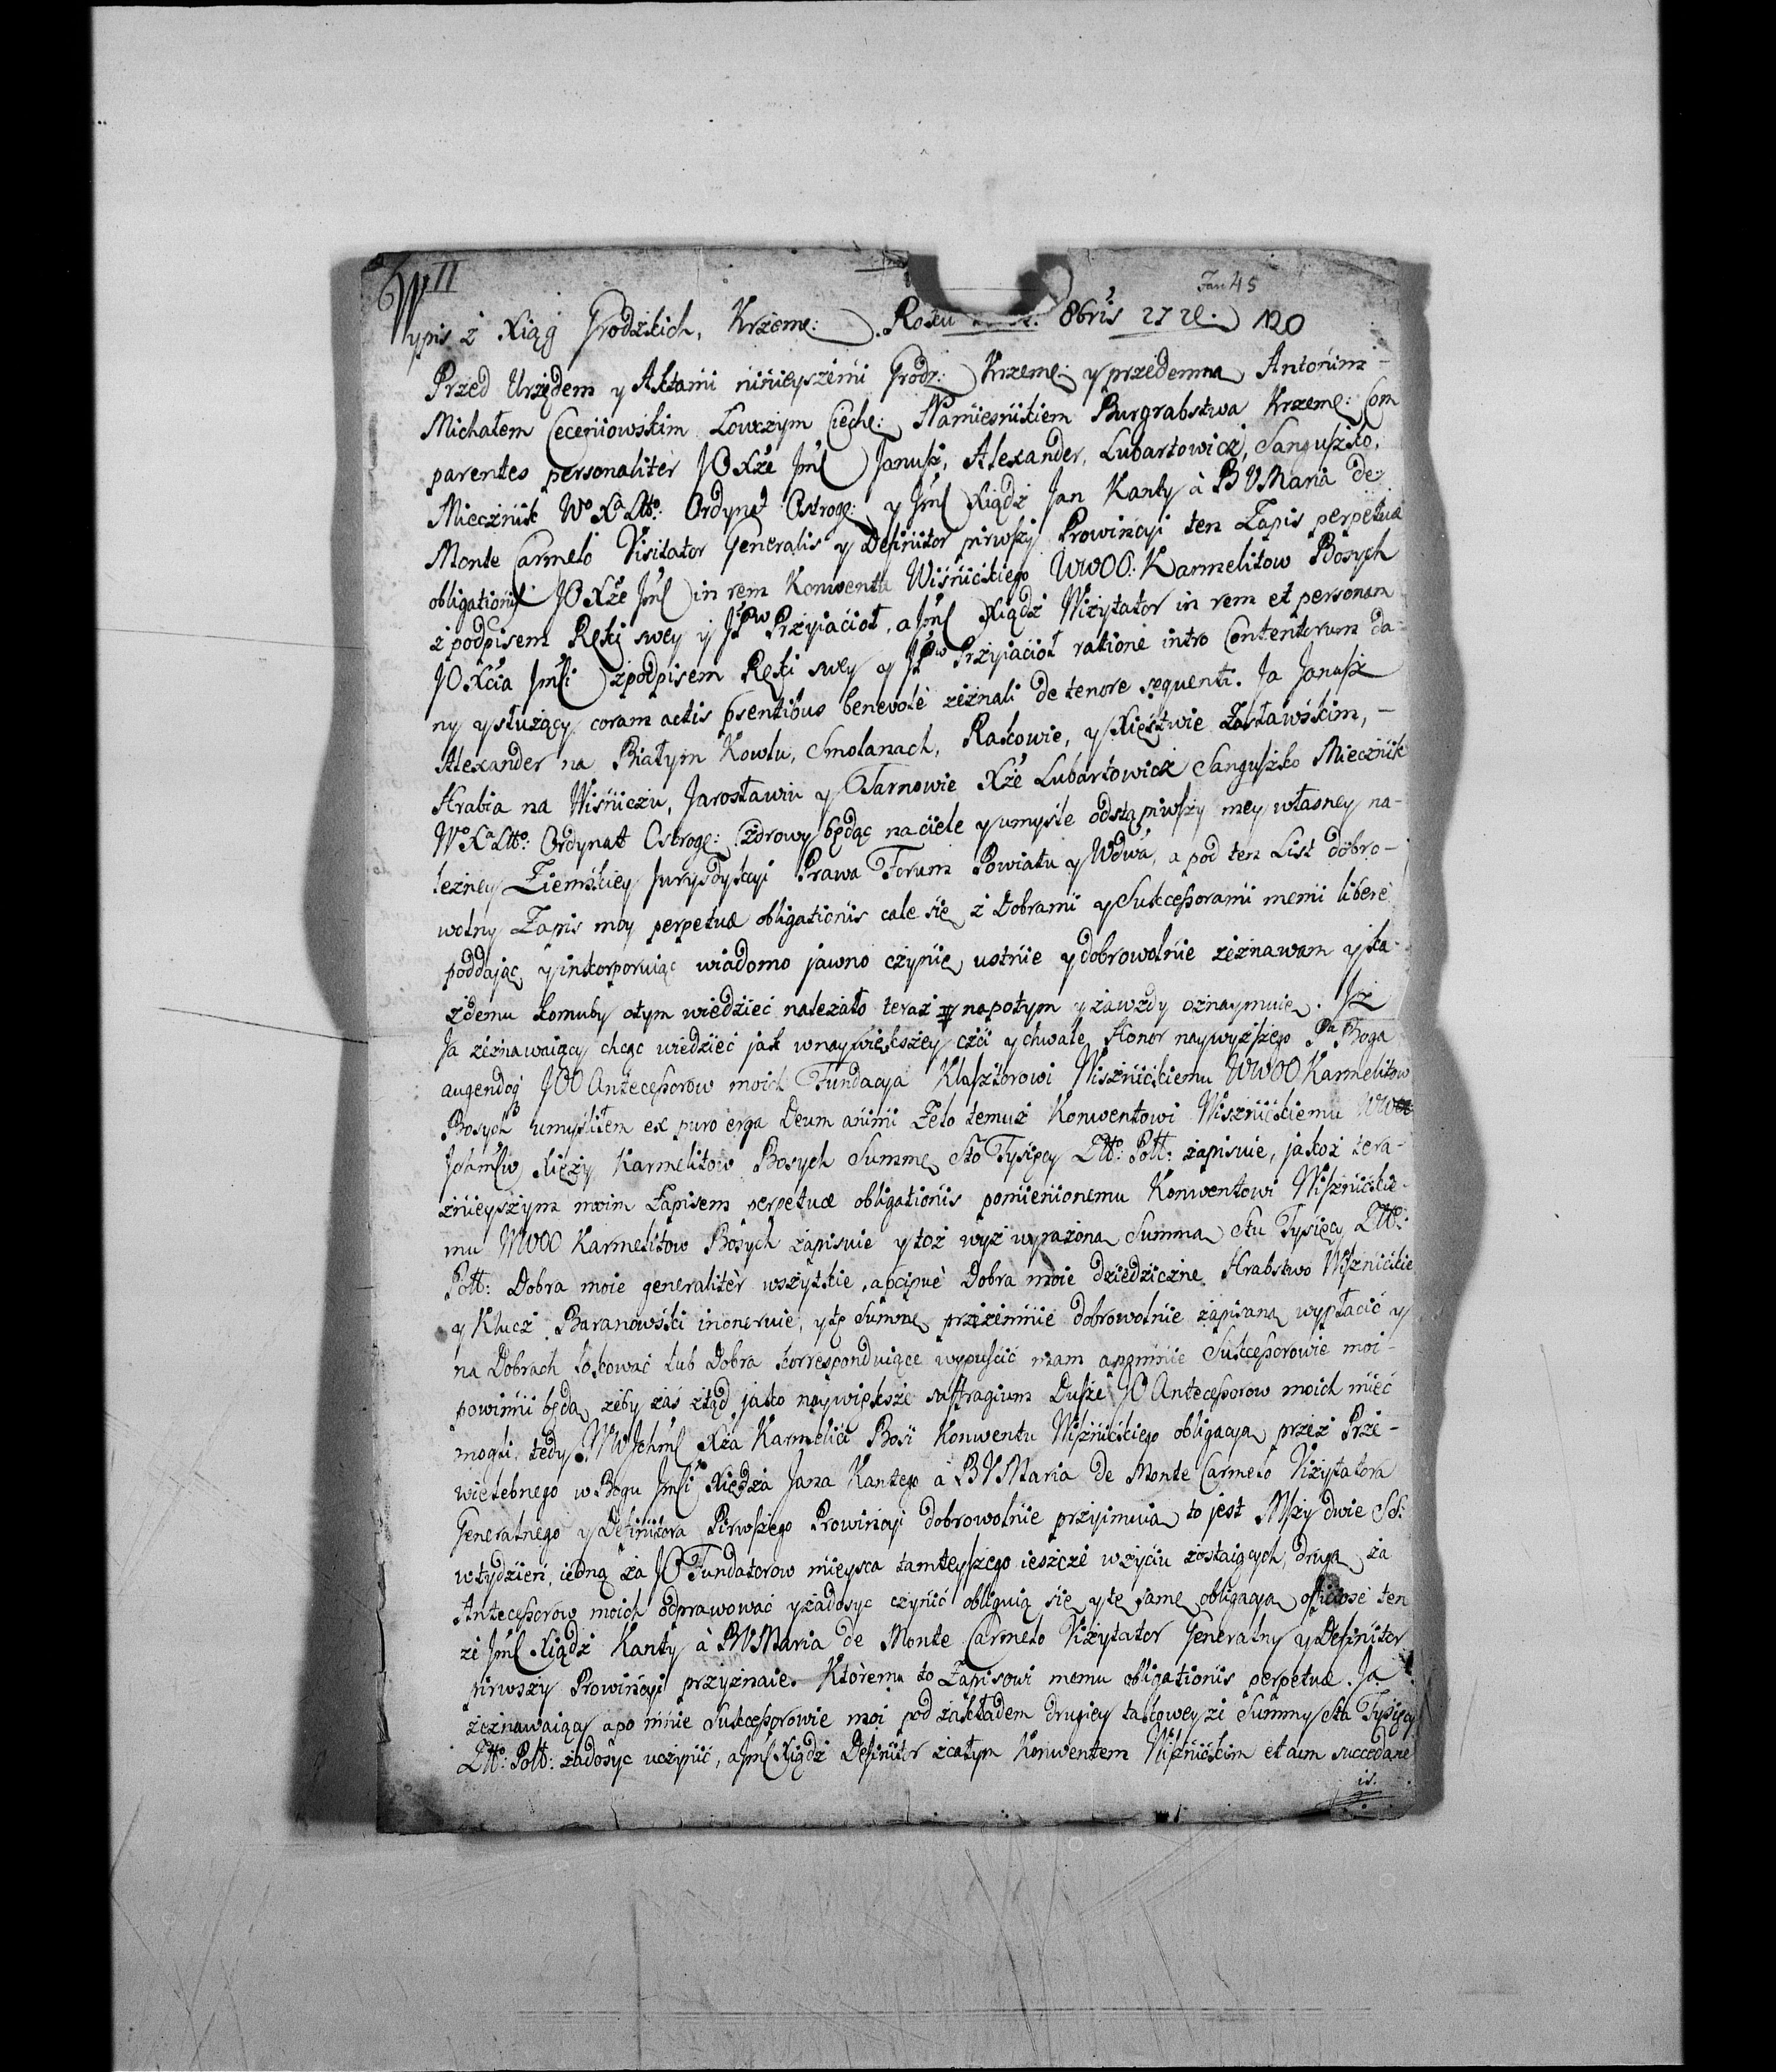 II
Fan 45
Wypis z Xiąg Grodzkich, Krzeme: Roku 8bris 27 120
Przed Urzędem y Aktami ninieyszemi Grodz: Krzeme: y przedemną Antonim
Michałem Ceceniowskim Łowczym Ciech: Namiesnikiem Burgrabstwa Krzeme: Com
parentes personaliter JO Xże Jmć Janusz, Alexander, Lubartowicz, Sanguszko,
Miecznik Wo Xa Litto: Ordynat Ostrog: y Jmć Xiądz Jan Kanty à BVMaria de
Monte Carmelo Visitator Generalis y Definitor pirwszy Prowincyi ten Zapis perpetuæ
obligationis JO Xże Jmć in rem Konwentu Wisnickiego WWOO: Karmelitow Bosych
z podpisem Ręki swey y Przyiacioł, a Jmć Xiądz Wizytator in rem et personam
JO Xcia Jmci z podpisem Ręki swey y Przyiacioł ratione intro Contentorum da-
ny y służący coram actis psentibus benevole zeznali de tenore sequenti. Ja Janusz
Alexander na Białym Kowlu, Smolanach, Rakowie, y Xięstwie Zasławskim, -
Hrabia na Wisniczu, Jarosławiu y Tarnowie Xże Lubartowicz Sanguszko Miecznik
Wo Xa Litto: Ordynat Ostrog: zdrowy będąc na ciele y umysle odstąpiwszy mey własney na-
lezney Ziemskiey Jurysdykcyi Prawa Forum Powiatu y Wdwa, a pod ten List dobro-
wolny Zapis moy perpetuæ obligationis cale się z Dobrami y Sukcessorami memi libere
poddaiąc y inkorporuiąc wiadomo jawno czynię ustnie y dobrowolnie zeznawam y ka-
żdemu komuby otym wiedziec nalezało teraz y napotym y zawzdy oznaymuię. Jż
Ja zeznawaiący chcąc wiedziec jak wnaywiększey czci y chwale Honor naywyzszego Pa Boga
augendo JOO Antecessorow moich Fundacya Klasztorowi Wisznickiemu WWOO Karmelitow
Bosych umysliłem ex puro erga Deum animi Zelo temuz Konwentowi Wisznickiemu WW
Jchmciw Xięzy Karmelitow Bosych Summę Sto Tysięcy Złło: Poll: zapisuie, jakoz tera-
znieyszym moim Zapisem perpetuæ obligationis pomienionemu Konwentowi Wisznickie-
mu WWOO Karmelitow Bosych zapisuie y toż wyż wyrazoną Summą Stu Tysięcy Złło:
Poll: Dobra moie generaliter wszytskie, a pcipue Dobra moie dziedziczne Hrabstwo Wisznickie
y Klucz Baranowski inoneruie, y tę Summę przezemnie dobrowolnie zapisaną wypłacić y
na Dobrach lokować lub Dobra korrespondujące wypuscić mam a pomnie Sukcessorowie moi
powinni będą, zeby zas ztąd jako naywieksze suffragium Dusze JO Antecessorow moich mieć
mogli. tedy WWJchmć Xża Karmelici Bosi Konwentu Wisznickiego obligacyą przez Prze-
wielebnego w Bogu Jmci Xiędza Jana Kantego à BVMaria de Monte Carmelo Vizytatora
Generalnego y Definitora Pirwszego Prowincyi dobrowolnie przyimuią to jest Mszy dwie SS:
wtydzien, iedną za JO Fundatorow mieysca tamteyszego ieszcze wzyciu zostaiących, drugą za
Antecessorow moich odprawować y zadosyc czynić obliguią się y tę samę obligacyą officiose ten
ze Jmć Xiądz Kanty à BVMaria de Monte Carmelo Vizytator Generalny y Definitor
pirwszy Prowincyi przyznaie. Ktoremu to Zapisowi memu obligationis perpetuæ. Ja
zeznawaiący a po mnie Sukcessorowie moi pod zakładem drugiey takoweyze Summy Sta Tysięcy
Złło: Poll: zadosyc uczynić, a Jmć Xiądz Definitor zcałym Konwentem Wisznickim etiam succedane
is.